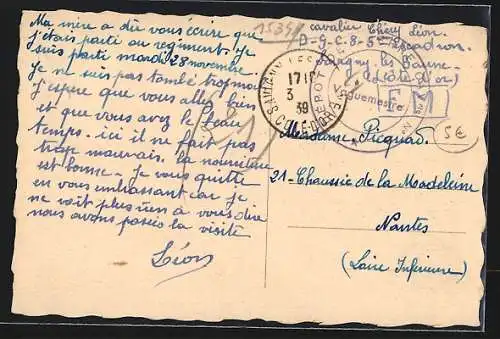 Ma mère a dû vous écrire que
j'étais parti au régiment. Je
suis parti mardi 28 novembre.
Je ne suis pas tombé trop mal
J'espère que vous allez bien
et que vous avez le beau
temps. ici il ne fait pas
trop mauvais. la nourriture
est bonne. Je vous quitte
en vous embrassant car je
ne voit plus rien à vous dire
nous avons passés la visite
Léon
1534
cavalier Léon.
D-G-C-8-5e Escadron.
Savigny les Beaune
(Côte d'Or)
SAVIGNY-LES-
17 15
3
39
CÔTE-D'OR
DEPOT
guemestre
F M
5€
Madame Picquad
21-Chaussée de la Madeleine
Nantes
(Loire Inférieure)